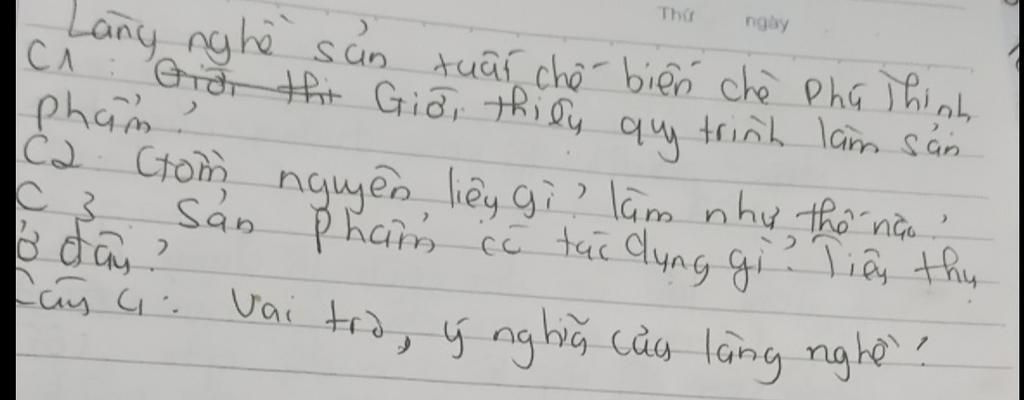 Thứ ngày
Làng nghề sản xuất chế biến chè Phú Thịnh
C1: Giới thi Giới thiệu quy trình làm sản
phẩm?
C2. Gồm nguyên liệu gì? làm như thế nào?
C3 Sản phẩm có tác dụng gì? Tiêu thụ
ở đâu?
Câu 4: Vai trò, ý nghĩa của làng nghề?